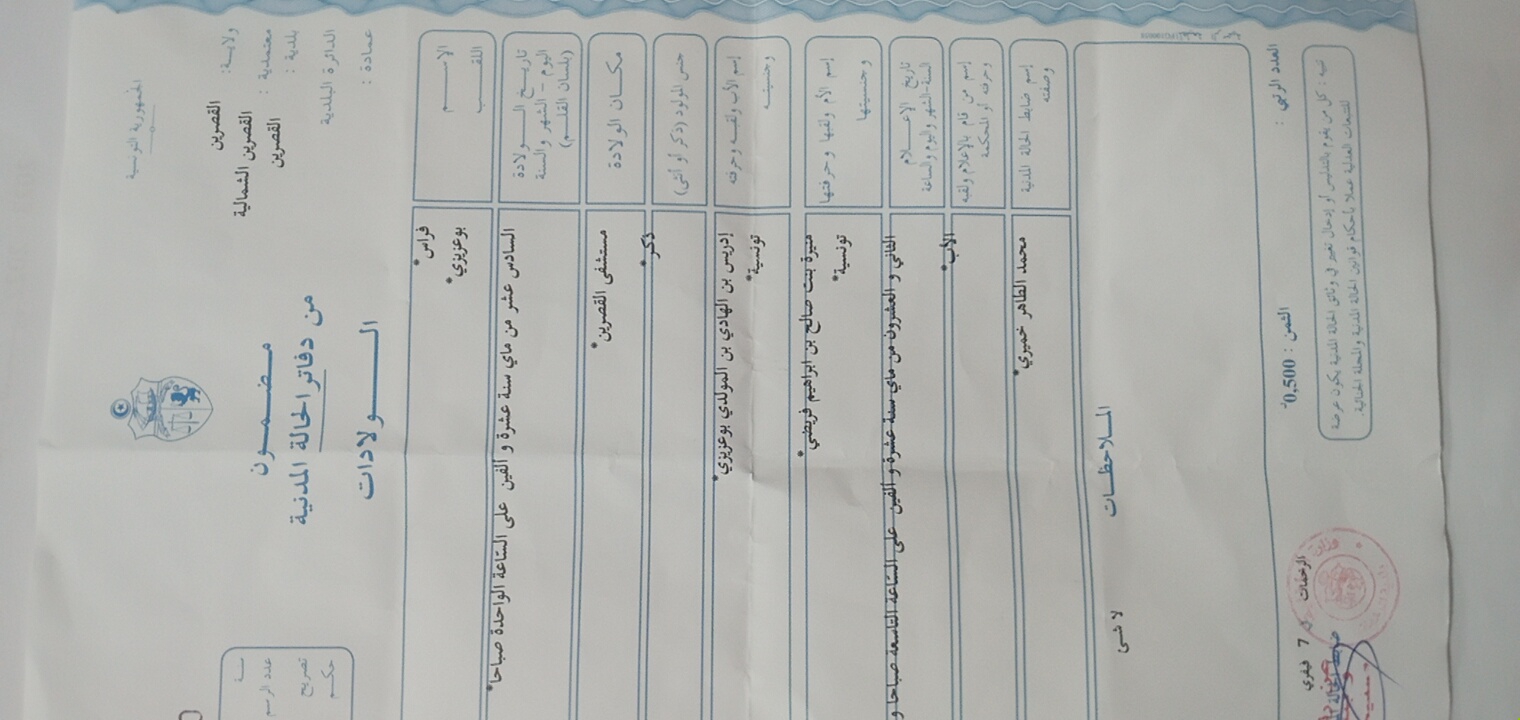 الجمهورية التونسية
ولاية: القصرين
معتمدية : القصرين الشمالية
بلدية : القصرين
الدائرة البلدية
عمادة :
مضمون
من دفاتر الحالة المدنية
الولادات
عدد الرسم
تصريح
حكم
الاسم
فراس*
اللقب
بوعزيزي*
تاريخ الولادة
اليوم - الشهر والسنة
(بلسان القلم)
السادس عشر من ماي سنة عشرة و الفين على الساعة الواحدة صباحا*
مكان الولادة
مستشفى القصرين*
جنس المولود (ذكر أو أنثى)
ذكر*
إسم الأب ولقبه وحرفته
إدريس بن الهادي بن المولدي بوعزيزي*
وجنسيته
تونسية*
إسم الأم ولقبها وحرفتها
منيرة بنت صالح بن ابراهيم فريضي*
وجنسيتها
تونسية*
تاريخ الإعلام
السنة-الشهر واليوم والساعة
الثاني و العشرون من ماي سنة عشرة و الفين على الساعة التاسعة صباحا و
إسم من قام بالإعلام ولقبه
وحرفته أو المحكمة
الأب*
إسم ضابط الحالة المدنية
وصفته
محمد الطاهر خميري*
الملاحظات
لا شئ
العدد الرتبي :
الثمن : 0,500د
تنبيه : كل من يقوم بالتدليس أو إدخال تغيير في وثائق الحالة المدنية يكون عرضة
للتتبعات العدلية عملا بأحكام قوانين الحالة المدنية والمجلة الجنائية.
الرخمات في 7 فيفري
ضابط الحالة